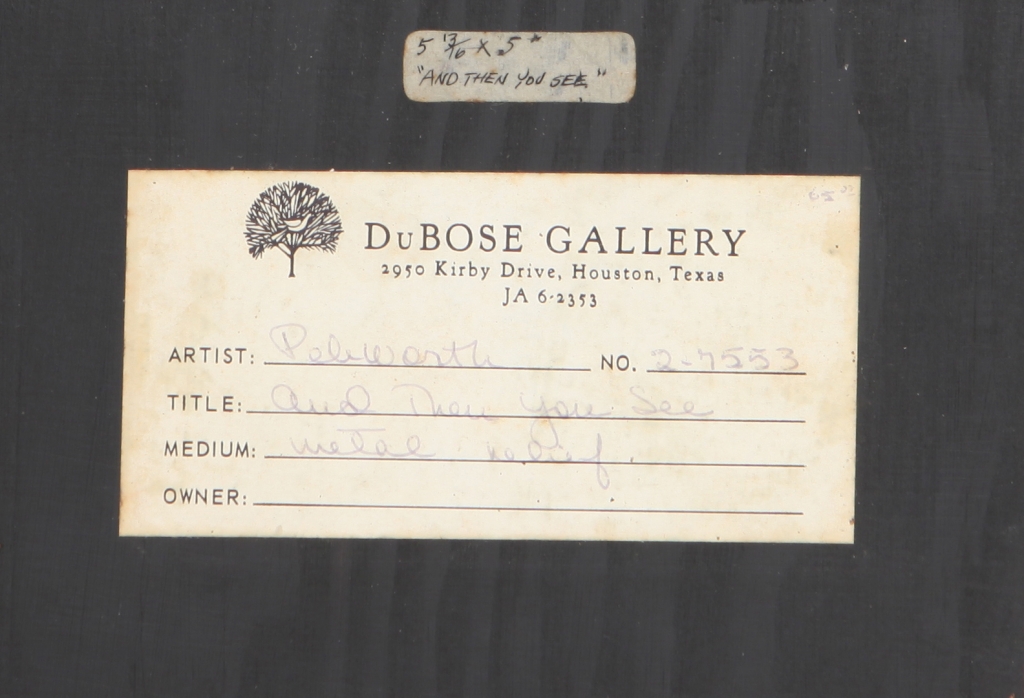 5 13/16 x 5"
"AND THEN YOU SEE"
65 00
DuBOSE GALLERY
2950 Kirby Drive, Houston, Texas
JA 6-2353
ARTIST: Pebworth NO. 2-7553
TITLE: And Then You See
MEDIUM: metal relief.
OWNER: